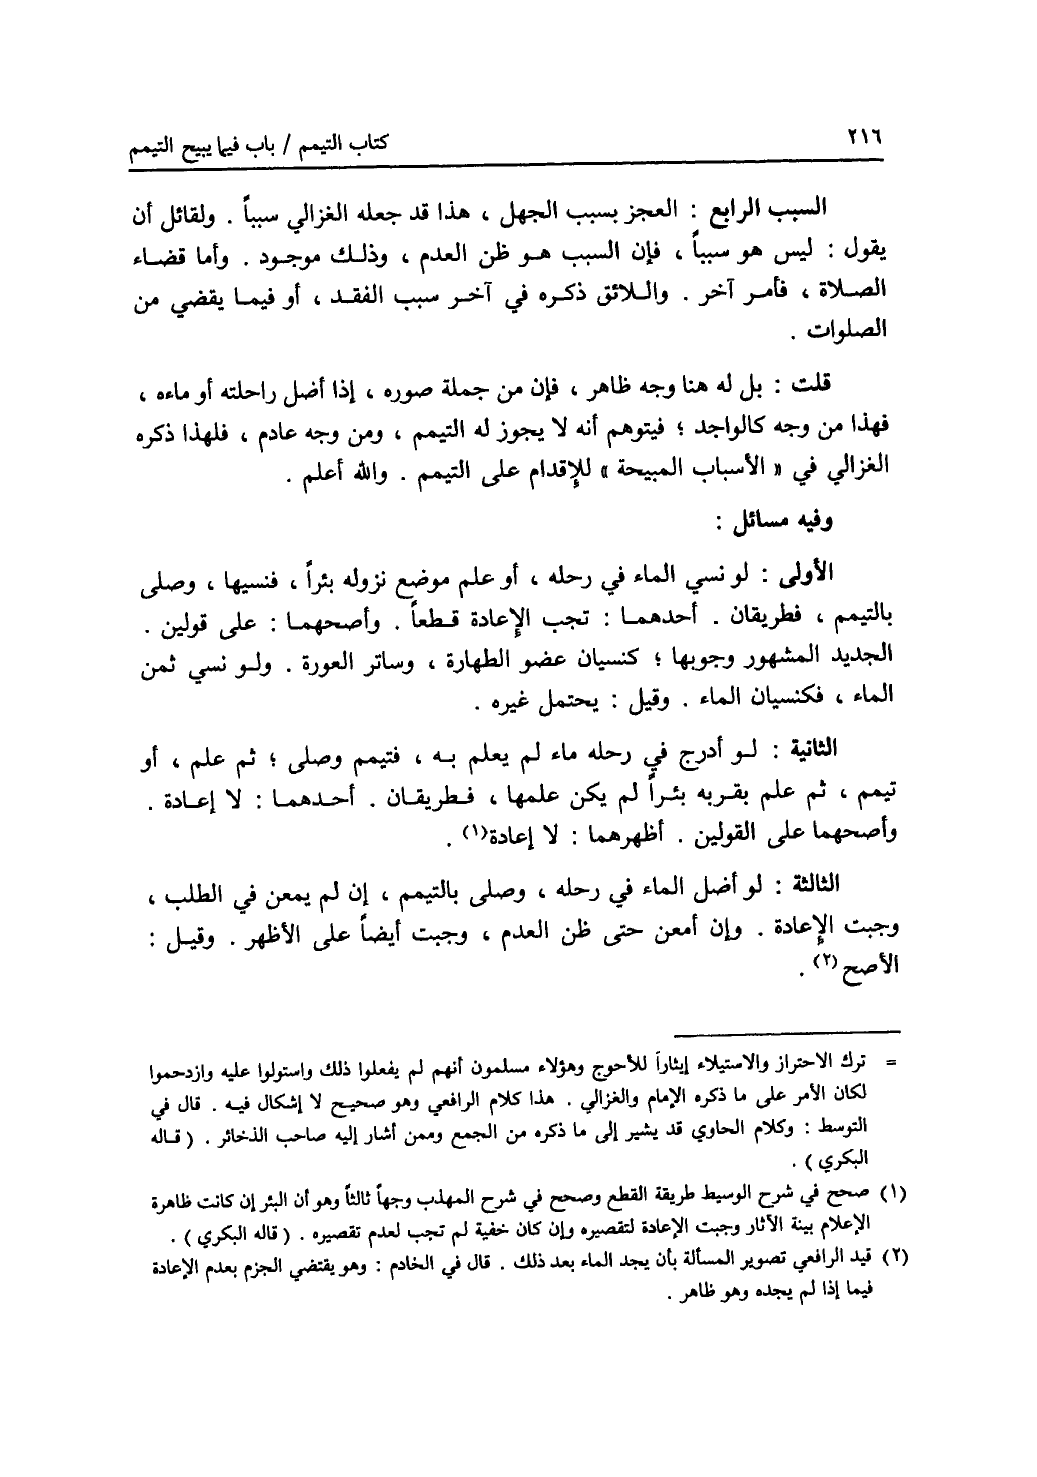 ٢١٦
كتاب التيمم / باب فيما يبيح التيمم
السبب الرابع : العجز بسبب الجهل ، هذا قد جعله الغزالي سبباً . ولقائل أن
يقول : ليس هو سبباً ، فإن السبب هـو ظن العدم ، وذلـك موجـود . وأما قضـاء
الصـلاة ، فأمـر آخر . والـلائق ذكـره في آخـر سبب الفقـد ، أو فيمـا يقضي من
الصلوات .
قلت : بل له هنا وجه ظاهر ، فإن من جملة صوره ، إذا أضل راحلته أو ماءه ،
فهذا من وجه كالواجد ؛ فيتوهم أنه لا يجوز له التيمم ، ومن وجه عادم ، فلهذا ذكره
الغزالي في « الأسباب المبيحة » للإقدام على التيمم . والله أعلم .
وفيه مسائل :
الأولى : لو نسي الماء في رحله ، أو علم موضع نزوله بئراً ، فنسيها ، وصلى
بالتيمم ، فطريقان . أحدهمـا : تجب الإعادة قـطعاً . وأصحهمـا : على قولين .
الجديد المشهور وجوبها ؛ كنسيان عضو الطهارة ، وساتر العورة . ولـو نسي ثمن
الماء ، فكنسيان الماء . وقيل : يحتمل غيره .
الثانية : لـو أدرج في رحله ماء لم يعلم بـه ، فتيمم وصلى ؛ ثم علم ، أو
تيمم ، ثم علم بقـربه بئـراً لم يكن علمها ، فـطريقـان . أحـدهمـا : لا إعـادة .
وأصحهما على القولين . أظهرهما : لا إعادة(١) .
الثالثة : لو أضل الماء في رحله ، وصلى بالتيمم ، إن لم يمعن في الطلب ،
وجبت الإعادة . وإن أمعن حتى ظن العدم ، وجبت أيضاً على الأظهر . وقيـل :
الأصح(٢) .
= ترك الاحتراز والاستيلاء إيثاراً للأحوج وهؤلاء مسلمون أنهم لم يفعلوا ذلك واستولوا عليه وازدحموا
لكان الأمر على ما ذكره الإمام والغزالي . هذا كلام الرافعي وهو صحيح لا إشكال فيـه . قال في
التوسط : وكلام الحاوي قد يشير إلى ما ذكره من الجمع وممن أشار إليه صاحب الذخائر . ( قـاله
البكري ) .
(١) صحح في شرح الوسيط طريقة القطع وصحح في شرح المهذب وجهاً ثالثاً وهو أن البئر إن كانت ظاهرة
الإعلام بينة الآثار وجبت الإعادة لتقصيره وإن كان خفية لم تجب لعدم تقصيره . ( قاله البكري ) .
(٢) قيد الرافعي تصوير المسألة بأن يجد الماء بعد ذلك . قال في الخادم : وهو يقتضي الجزم بعدم الإعادة
فيما إذا لم يجده وهو ظاهر .